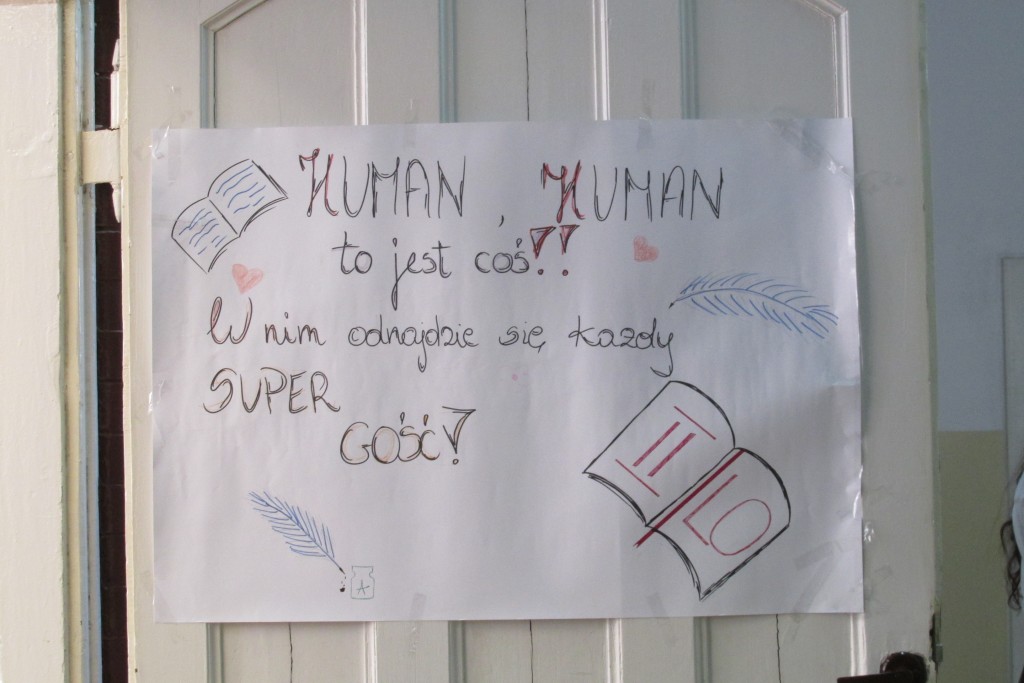 HUMAN, HUMAN
to jest coś!!
W nim odnajdzie się każdy
SUPER
GOŚĆ!
II LO
A